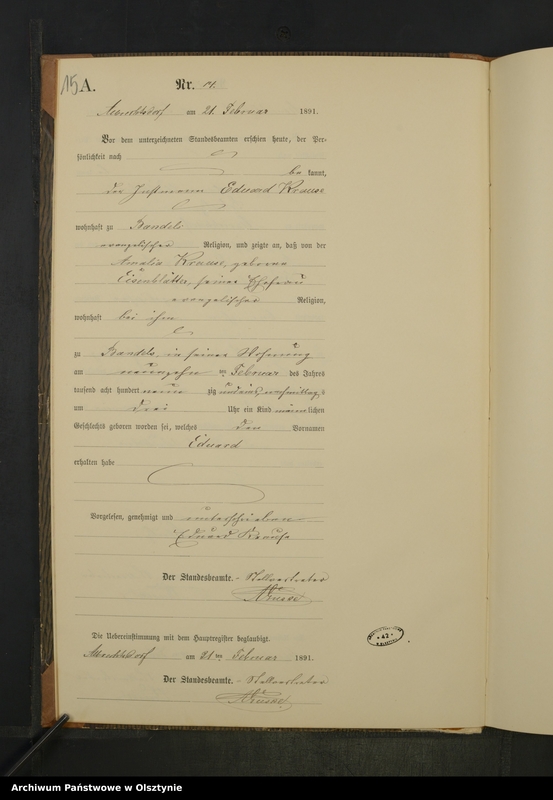 15 A.
Nr. 14.
am 21. Februar 1891.
Vor dem unterzeichneten Standesbeamten erschien heute, der Per-
sönlichkeit nach
be kannt,
der Instmann Eduard Krause
wohnhaft zu Bandels
evangelischer Religion, und zeigte an, daß von der
Amalie Krause, geborene
Eisenblätter, seiner Ehefrau
evangelischer Religion,
wohnhaft bei ihm
zu Bandels, in seiner Wohnung
am neunzehn ten Februar des Jahres
tausend acht hundert neun zig und eins, nachmittags
um drei Uhr ein Kind männlichen
Geschlechts geboren worden sei, welches den Vornamen
Eduard
erhalten habe
Vorgelesen, genehmigt und unterschrieben
Eduard Krause
Der Standesbeamte. Stellvertreter
Die Uebereinstimmung mit dem Hauptregister beglaubigt.
am 21 ten Februar 1891.
Der Standesbeamte. Stellvertreter
42
Archiwum Państwowe w Olsztynie